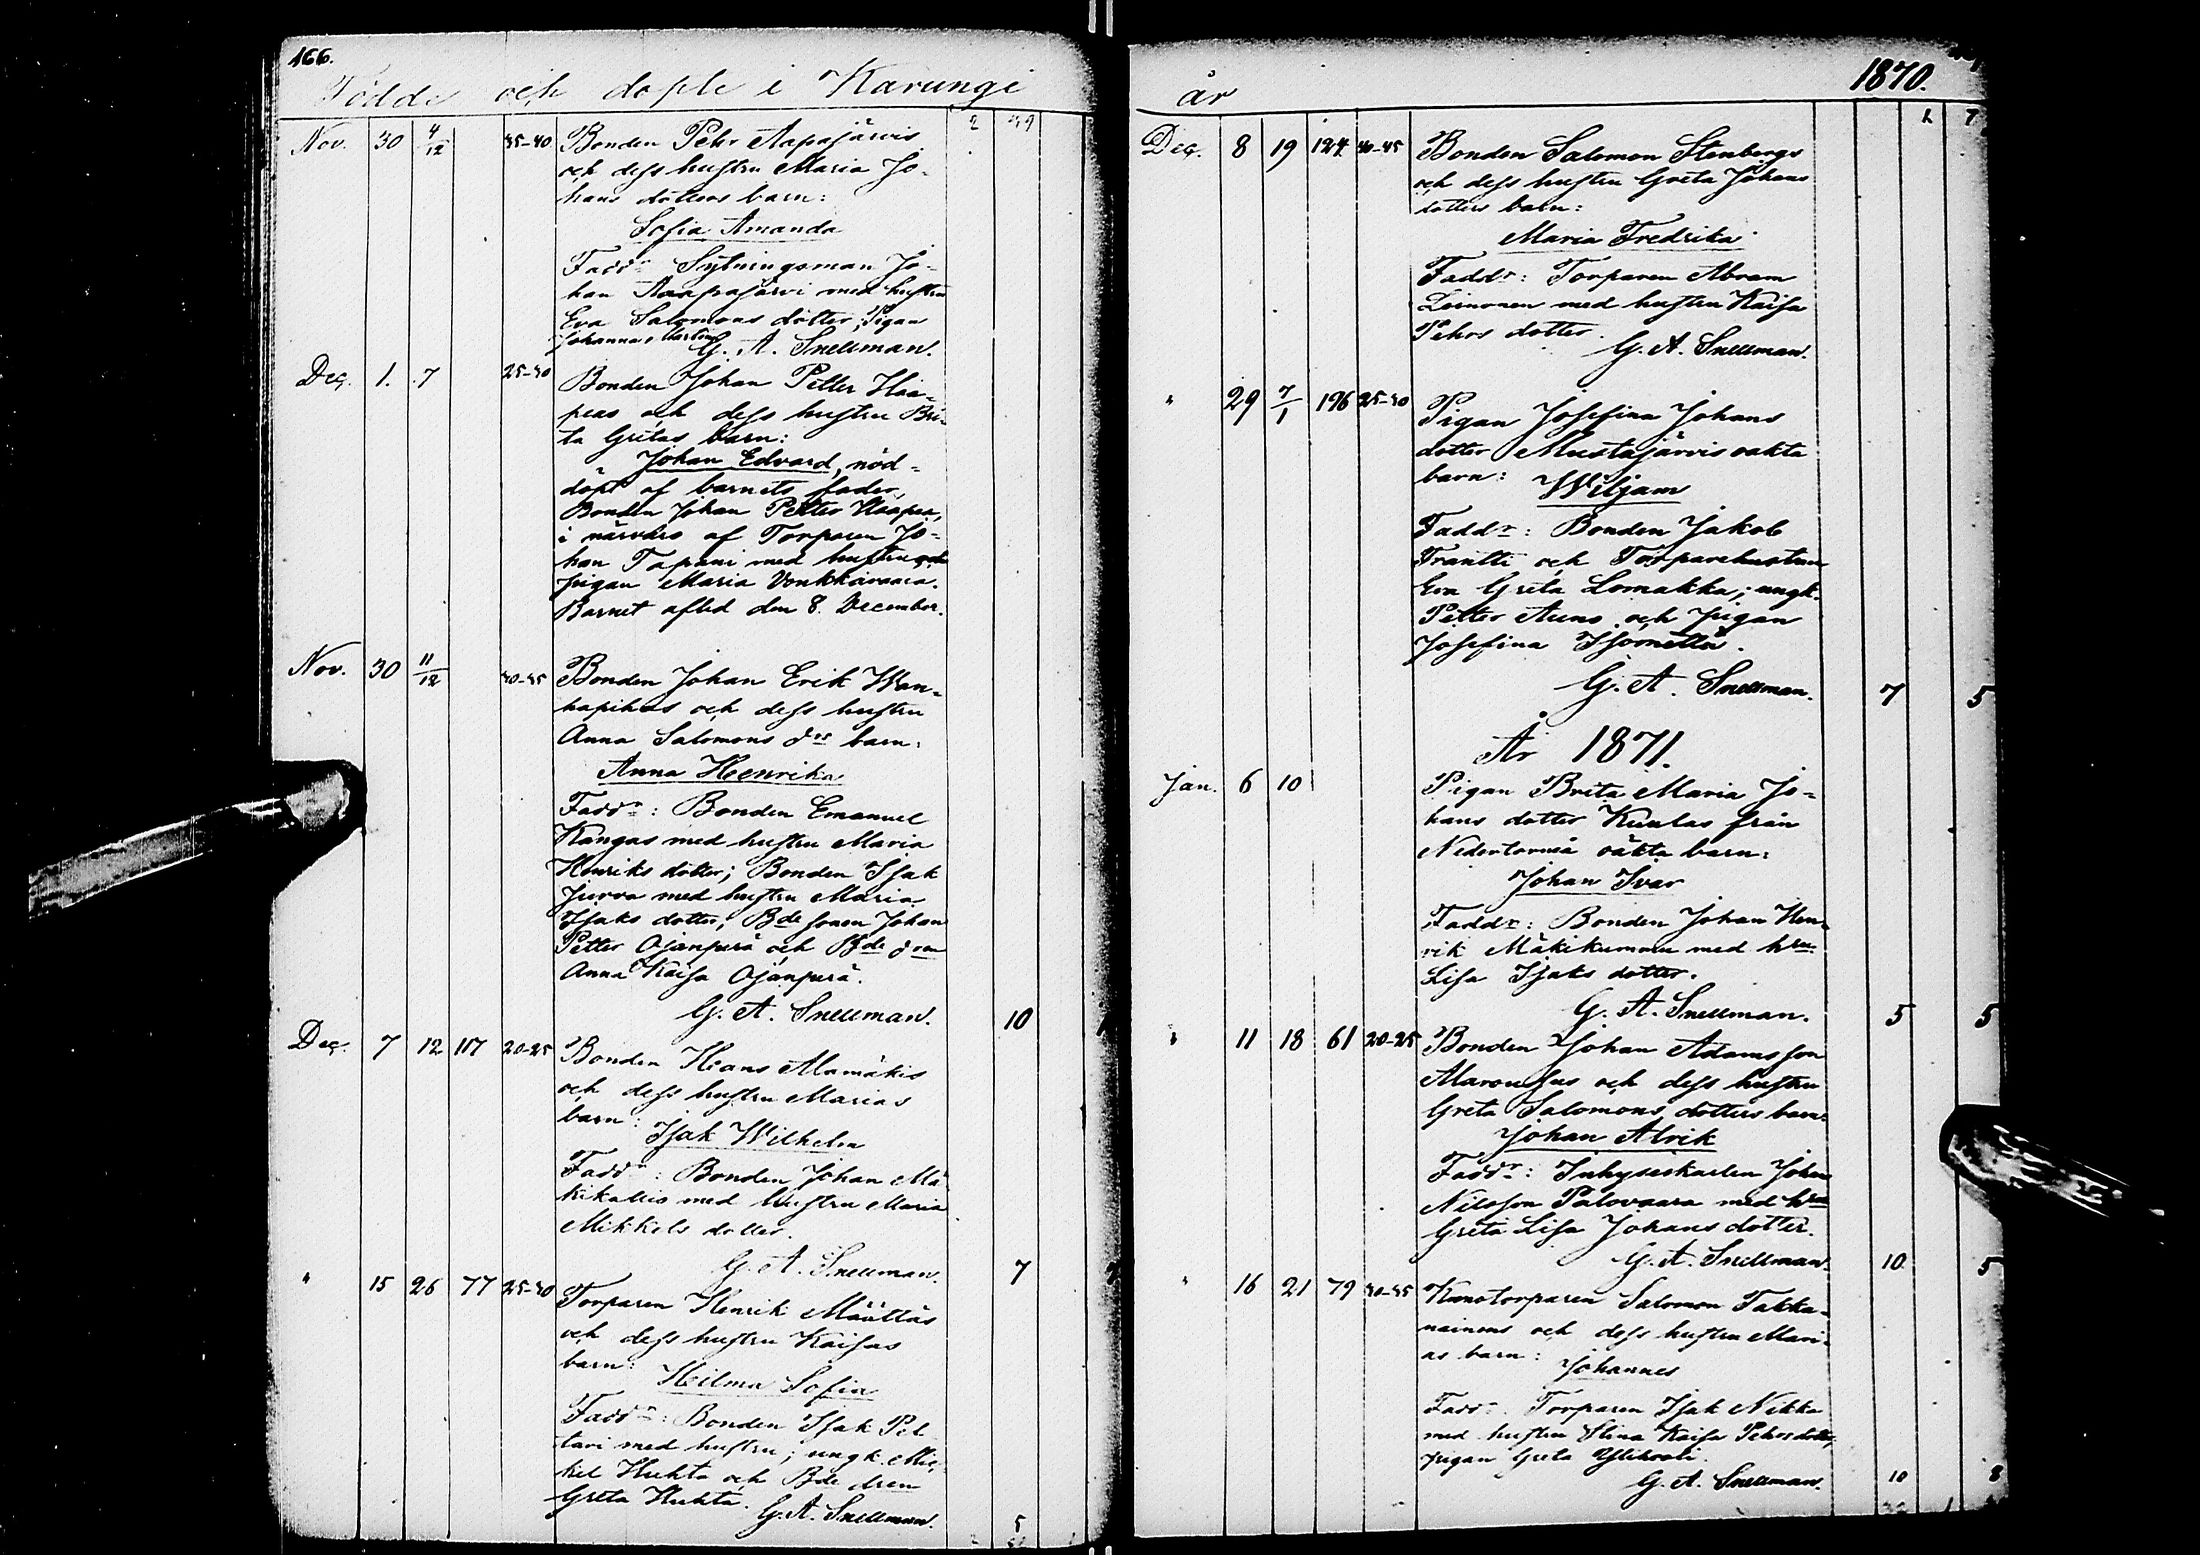 166.
Födde och döpte i Karungi
Nov. 30 4/12 35-40 Bonden Pehr Aapajärvis
och dess hustru Maria Jo-
hans dotters barn:
Sofia Amanda
Faddr Sytningsman Jo-
han Aapajärvi med hustru
Eva Salomons dotter; Pigan
Johanna
G. A. Snellman.
Dec. 1. 7 25-30 Bonden Johan Petter Haa-
peas och dess hustru Bri-
ta Gretas barn:
Johan Edvard, nöd-
döpt af barnets fader,
Bonden Johan Petter Haapea,
i närvaro af Torparen Jo-
han Tapani med hustru och
pigan Maria Vonkkavaara.
Barnet afled den 8. December.
Nov. 30 11/12 30-35 Bonden Johan Erik Wan-
hapihas och dess hustru
Anna Salomons drs barn:
Anna Henrika
Faddr: Bonden Emanuel
Kangas med hustru Maria
Henriks dotter; Bonden Isak
Jurva med hustru Maria
Isaks dotter; Bde sonen Johan
Petter Ojanperä och Bde dren
Anna Kaisa Ojanperä.
G. A. Snellman. 10
Dec. 7 12 117 20-25 Bonden Hans Alamäkis
och dess hustru Marias
barn: Isak Wilhelm
Faddr: Bonden Johan Mä-
kikallio med hustru Maria
Mikkels dotter.
G. A. Snellman. 7
" 15 26 77 25-30 Torparen Henrik Määttäs
och dess hustru Kaisas
barn: Hilma Sofia
Faddr: Bonden Isak Pel-
tari med hustru; ungk. Mic-
kel Huhta och Bde dren
Greta Huhta. G. A. Snellman. 5
år 1870.
Dec. 8 19 124 40-45 Bonden Salomon Stenbergs
och dess hustru Greta Johans
dotters barn:
Maria Fredrika
Faddr: Torparen Abram
Leinonen med hustru Kaisa
Pehrs dotter.
G. A. Snellman.
" 29 7/1 196 25-30 Pigan Josefina Johans
dotter Mustajärvis oäkta
barn: Wiljam
Faddr: Bonden Jakob
Frantti och Torparehustrun
Eva Greta Lomakka; ungk.
Petter Auno och Pigan
Josefina
G. A. Snellman. 7 5
År 1871.
Jan. 6 10 Pigan Brita Maria Jo-
hans dotter Kuulas från
Nedertorneå oäkta barn:
Johan Ivar
Faddr: Bonden Johan Hen-
rik Mäkikummu med hru
Lisa Isaks dotter.
G. A. Snellman. 5 5
" 11 18 61 20-25 Bonden Johan Adamsson
och dess hustru
Greta Salomons dotters barn:
Johan Alrik
Faddr: Inhyseskarlen Johan
Nilsson Palovaara med hru
Greta Lisa Johans dotter.
G. A. Snellman. 10 5
" 16 21 79 30-35 Kronotorparen Salomon Takka-
nainens och dess hustru Mari-
as barn: Johannes
Faddr. Torparen Isak Nikka
med hustru Stina Kaisa Pehrsdotter,
pigan Greta
G. A. Snellman. 10 8